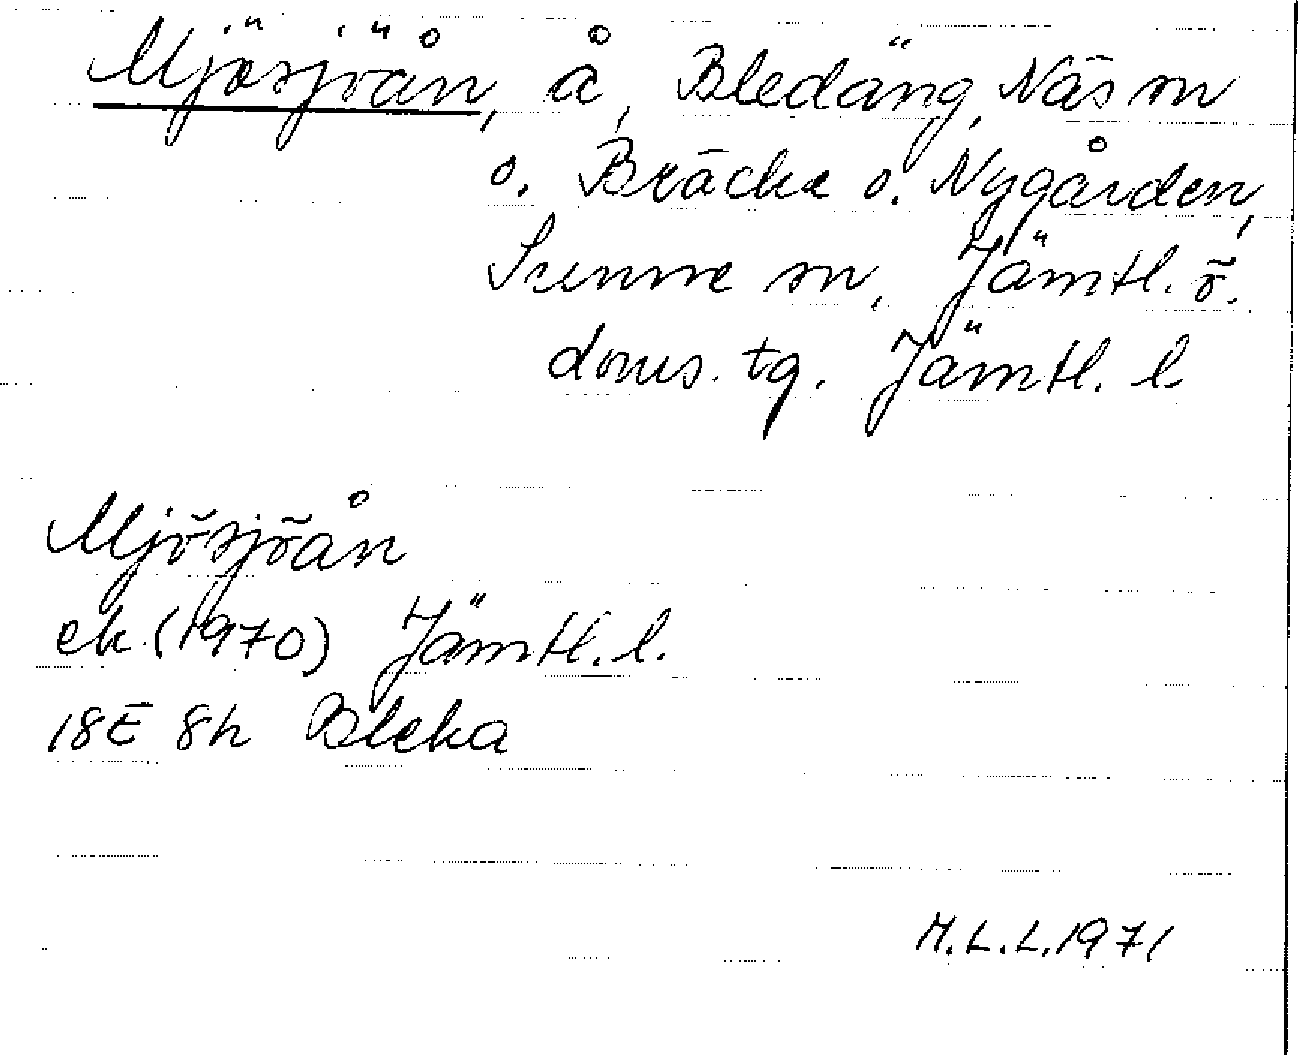 Mjösjöån, å, Bledäng, Näs sn
o. Bräcke o. Nygården,
Sunne sn, Jämtl. ö.
doms. tg. Jämtl. l
Mjösjöån
ek. (1970) Jämtl. l.
18E 8h Bleka
M.L.L. 1971